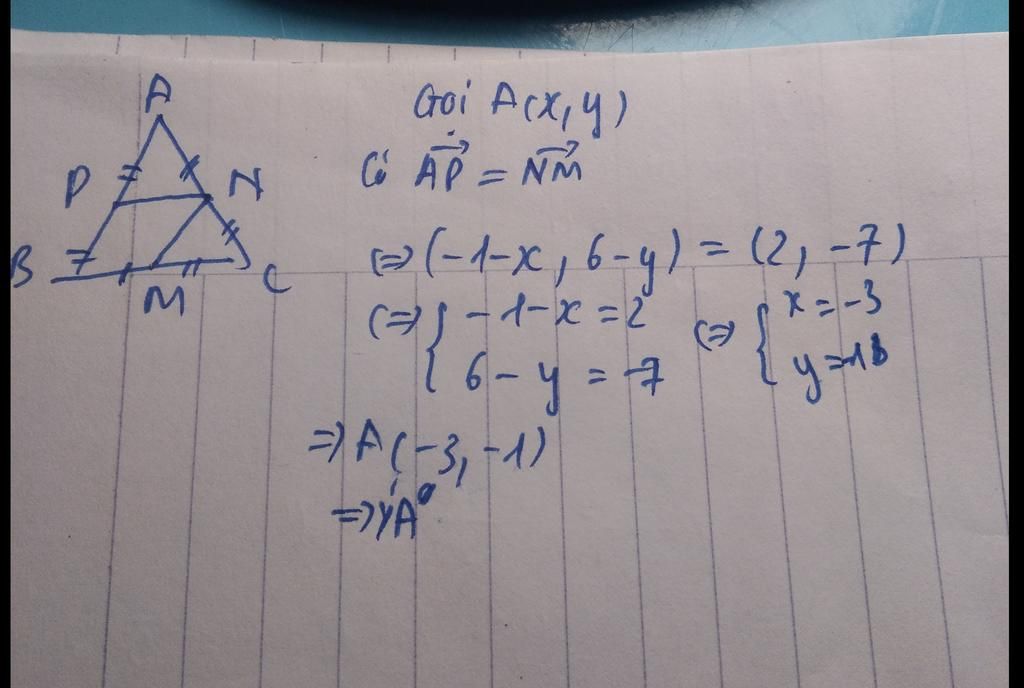 A
P N
B M C
Gọi A(x, y)
Có AP = NM
<=> (-1-x, 6-y) = (2, -7)
<=> { -1-x = 2 <=> { x = -3
6 - y = -7 y =
=> A(-3, -1)
=> Ý A